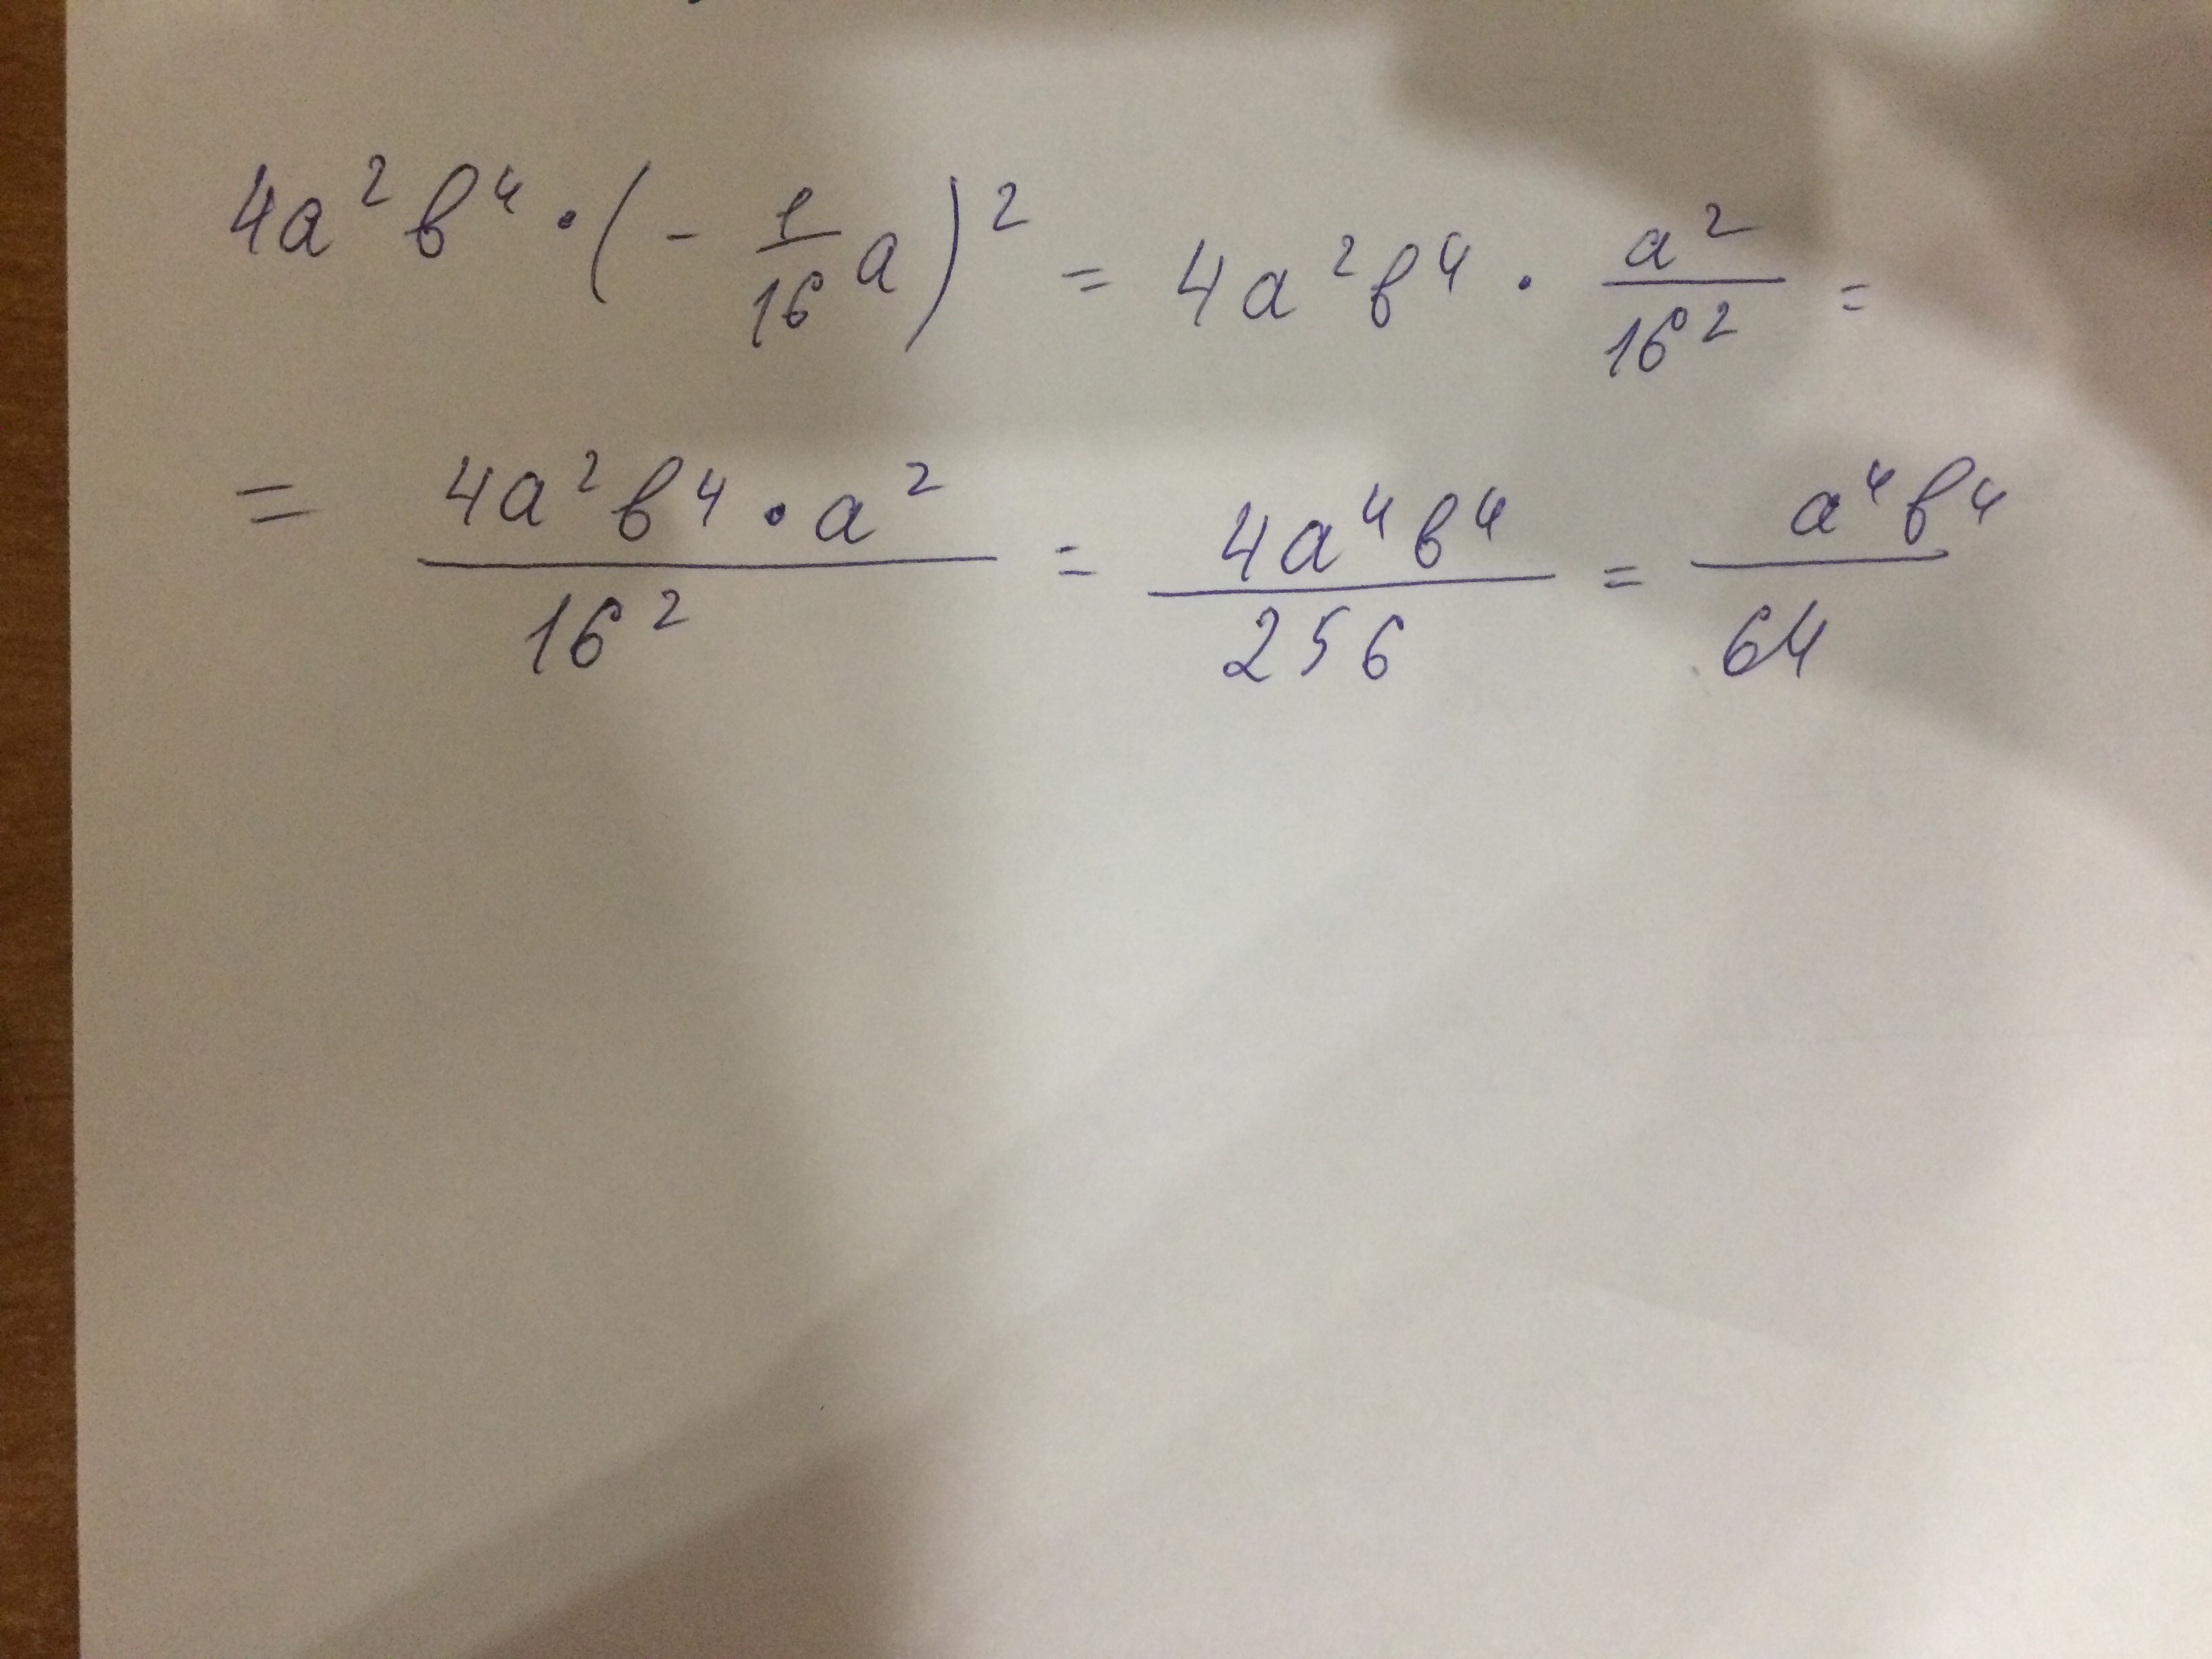 4a²b⁴ · (- 1/16 a)² = 4a²b⁴ · a²/16² =
= 4a²b⁴ · a²/16² = 4a⁴b⁴/256 = a⁴b⁴/64